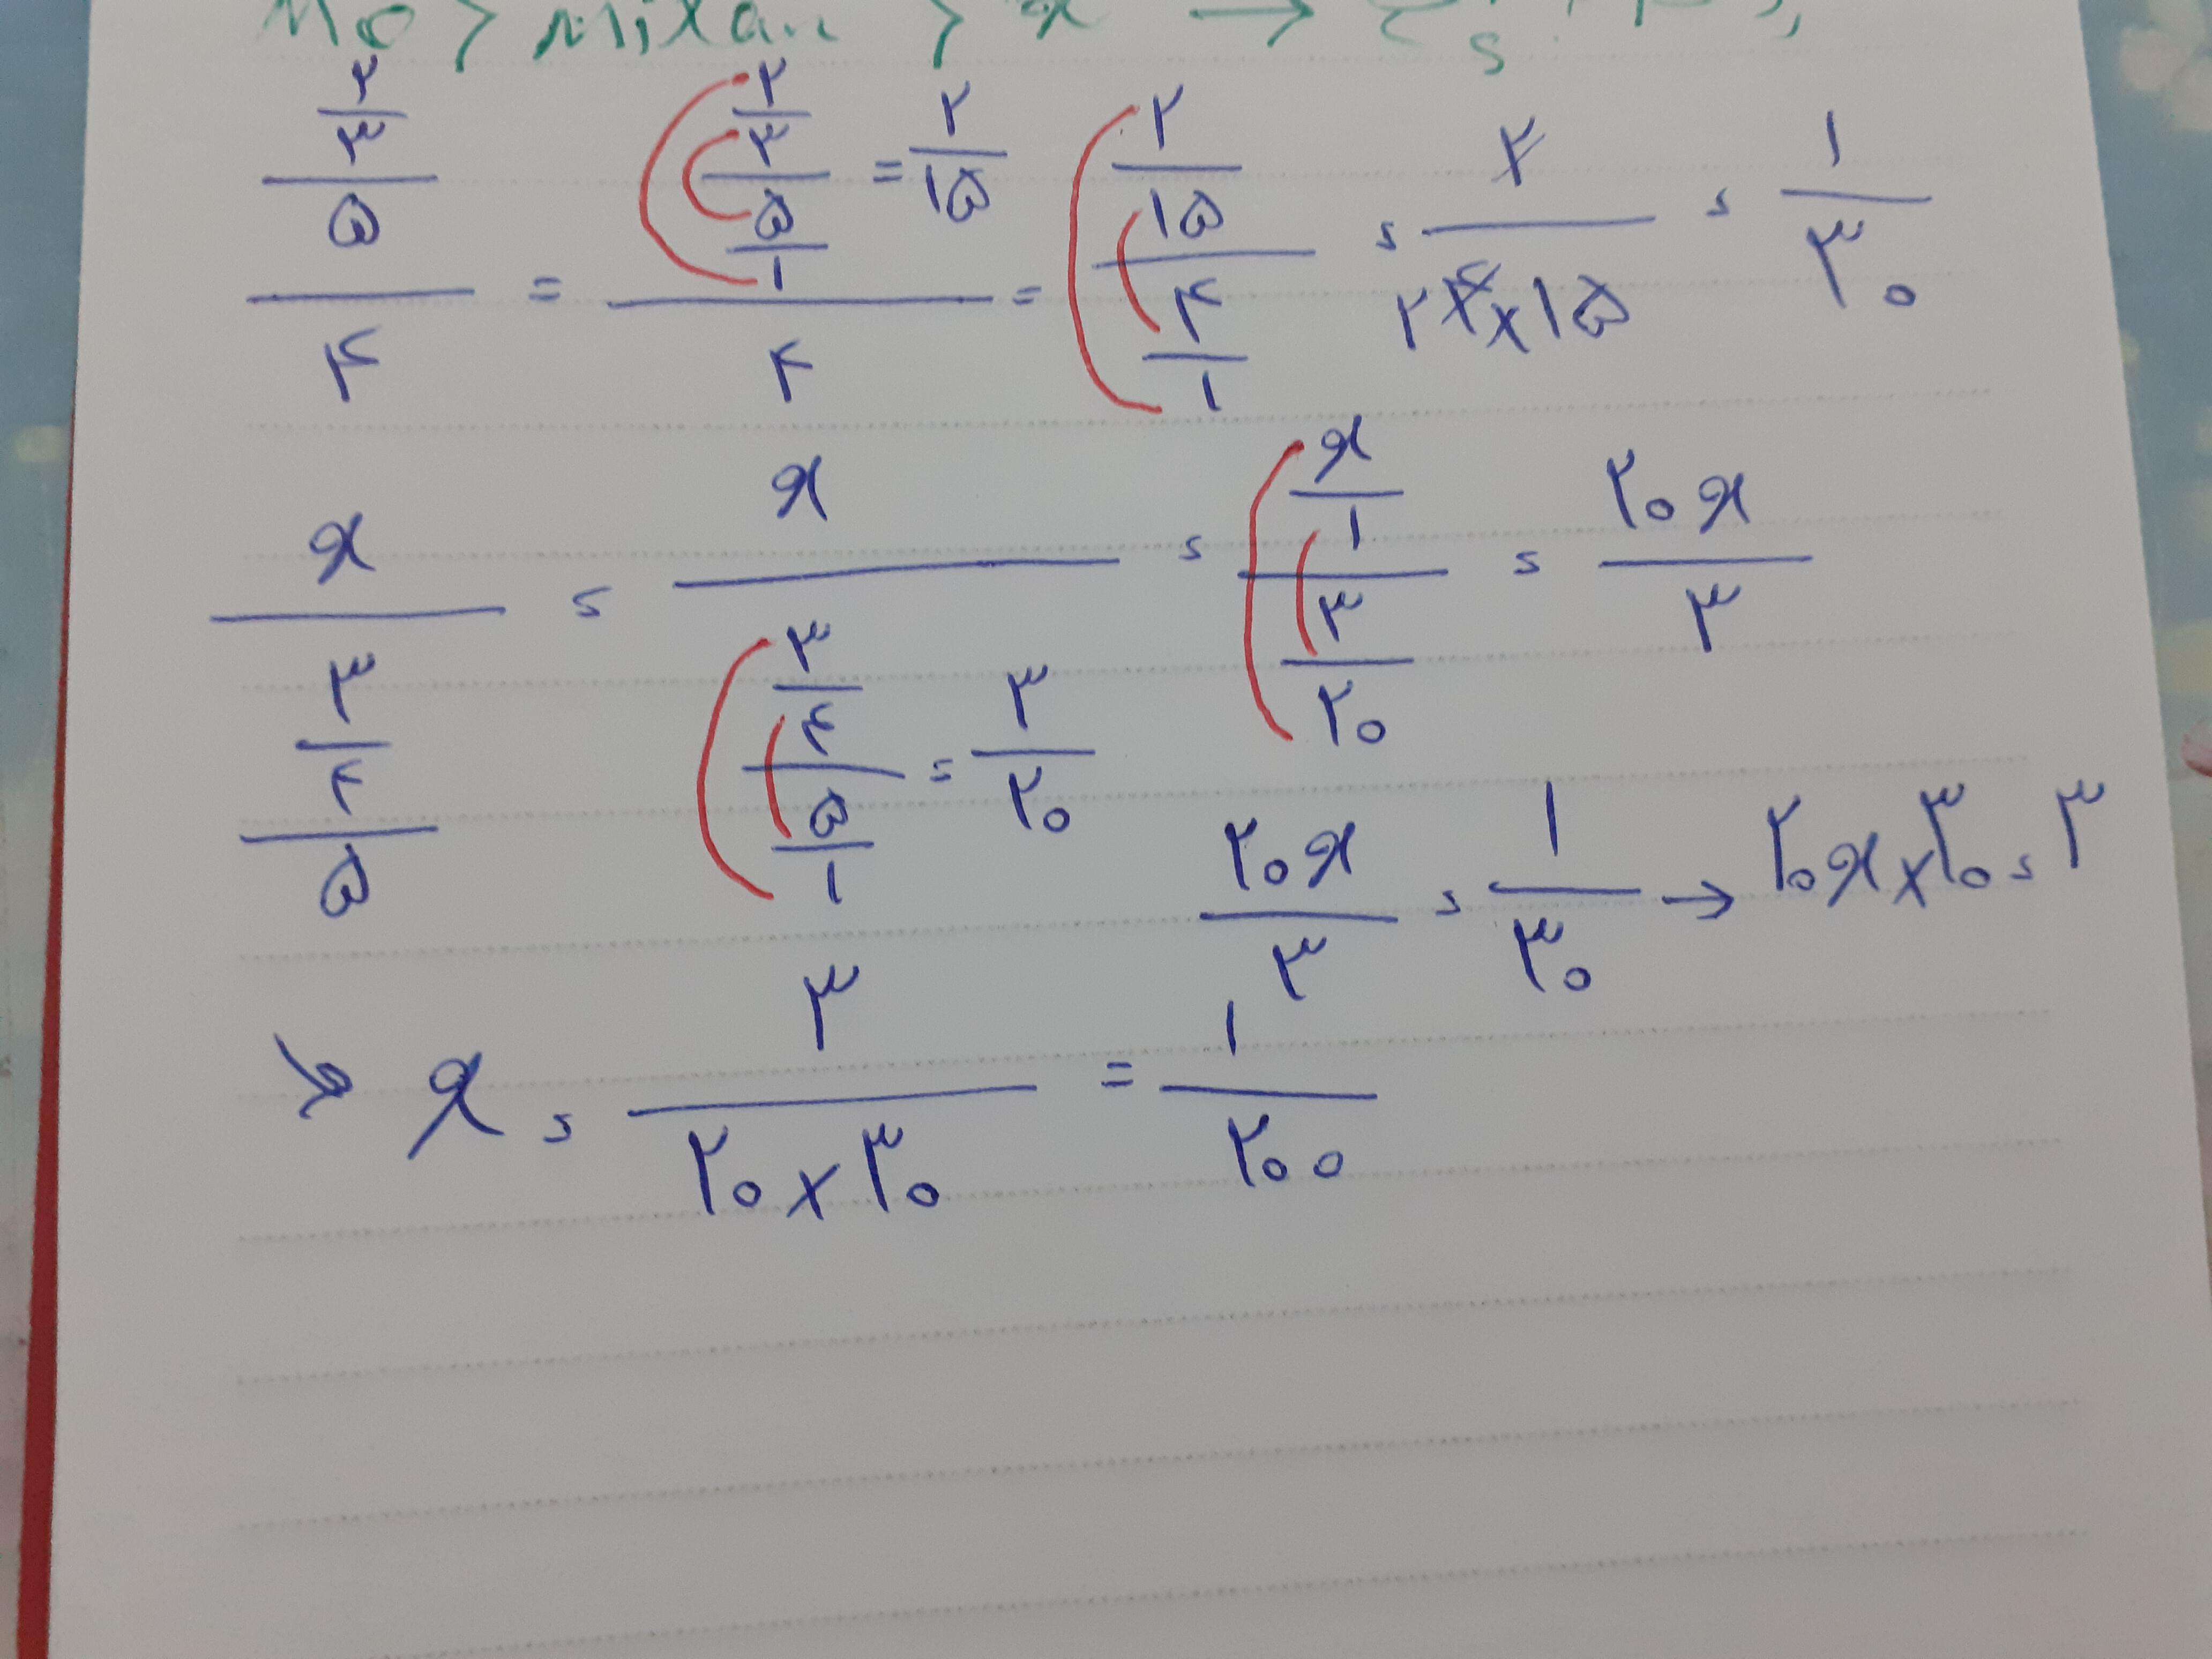 ((۲/۳)/۵)/۴ = ((۲/۳)/(۵/۱) = ۲/۱۵)/۴ = (۲/۱۵)/(۴/۱) = ۲/(۲ ۴×۱۵) = ۱/۳۰
x/((۳/۴)/۵) = x/((۳/۴)/(۵/۱) = ۳/۲۰) = (x/۱)/(۳/۲۰) = ۲۰x/۳
۲۰x/۳ = ۱/۳۰ → ۲۰x×۳۰=۳
→ x = ۳/(۲۰×۳۰) = ۱/۲۰۰